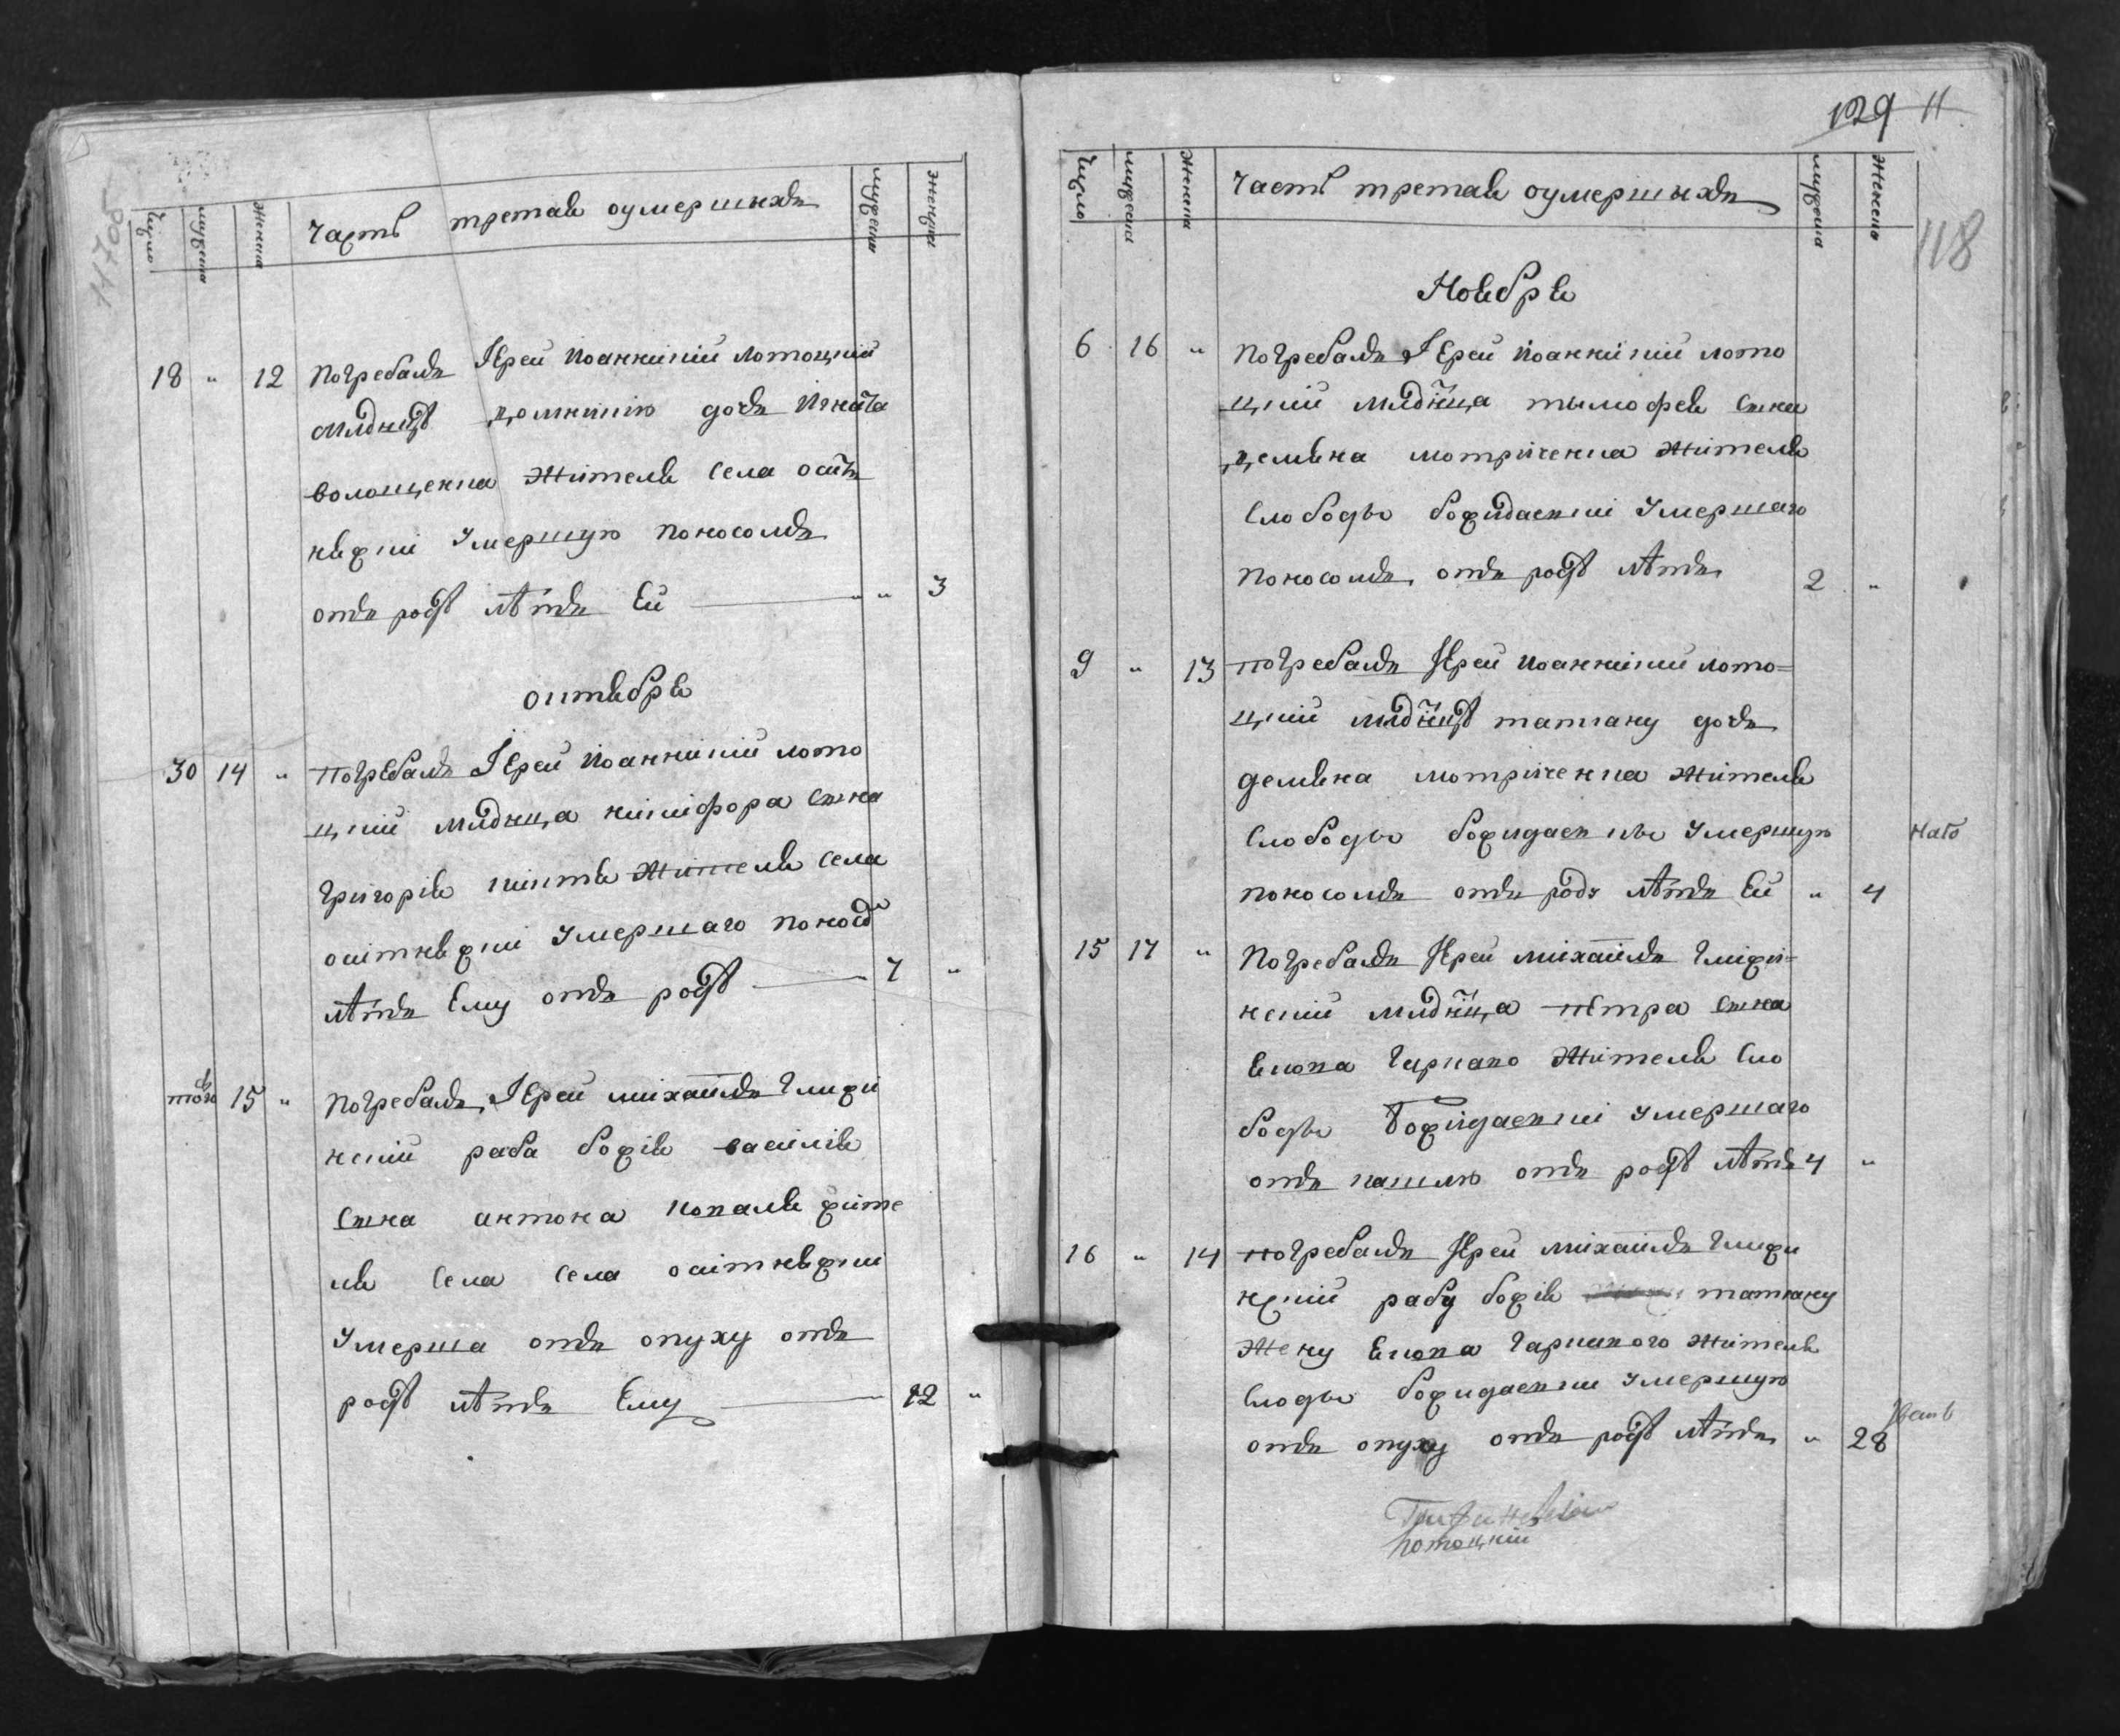 Число мужеска женска Часть третая оумершихъ мужеска женска
18 " 12 Погребалъ Іерей Иоанникий Лотоцкий
млднцу домникию дочь Игната
волощенка жителя села оситъ
няжки умершую поносомъ
отъ роду лѣтъ Ей " " 3
октября
30 14 " погребалъ Іерей Иоанникий лото
цкий млднца никифора сына
григория житель села
оситняжки умершаго понос
лѣтъ Ему отъ роду 7 "
15 " Погребалъ Іерей михаилъ глижи
нский раба божия василия
сына антона коваля жите
ля села села оситняжки
умерша отъ опуху отъ
роду лѣтъ Ему 12 "
129 11
118
Число мужеска женска Часть третая оумершихъ мужеска женска
Ноября
6 16 " погребалъ Іерей Иоанникий лото
цкий млднца тымофея сына
демяна мотриченка жителя
слободы божидаевки умершаго
поносомъ отъ роду лѣтъ 2 "
9 " 13 погребалъ Іерей Иоанникий лото=
цкий млднцу татиану дочь
демяна мотриченка жителя
слободы божидаевкы умершую
поносомъ отъ роду лѣтъ Ей " 4
15 17 " Погребалъ Іерей михаилъ глижи=
нский млднца петра сына
Якова жителя сло
боды Божидаевки умершаго
отъ кашлю отъ роду лѣтъ 4 "
16 " 14 погребалъ Іерей михаилъ глижи
нский рабу божия татиану
жену Якова жителя
слоды божидаевки умершую
отъ опуху отъ роду лѣтъ " 28
Лотоцкий